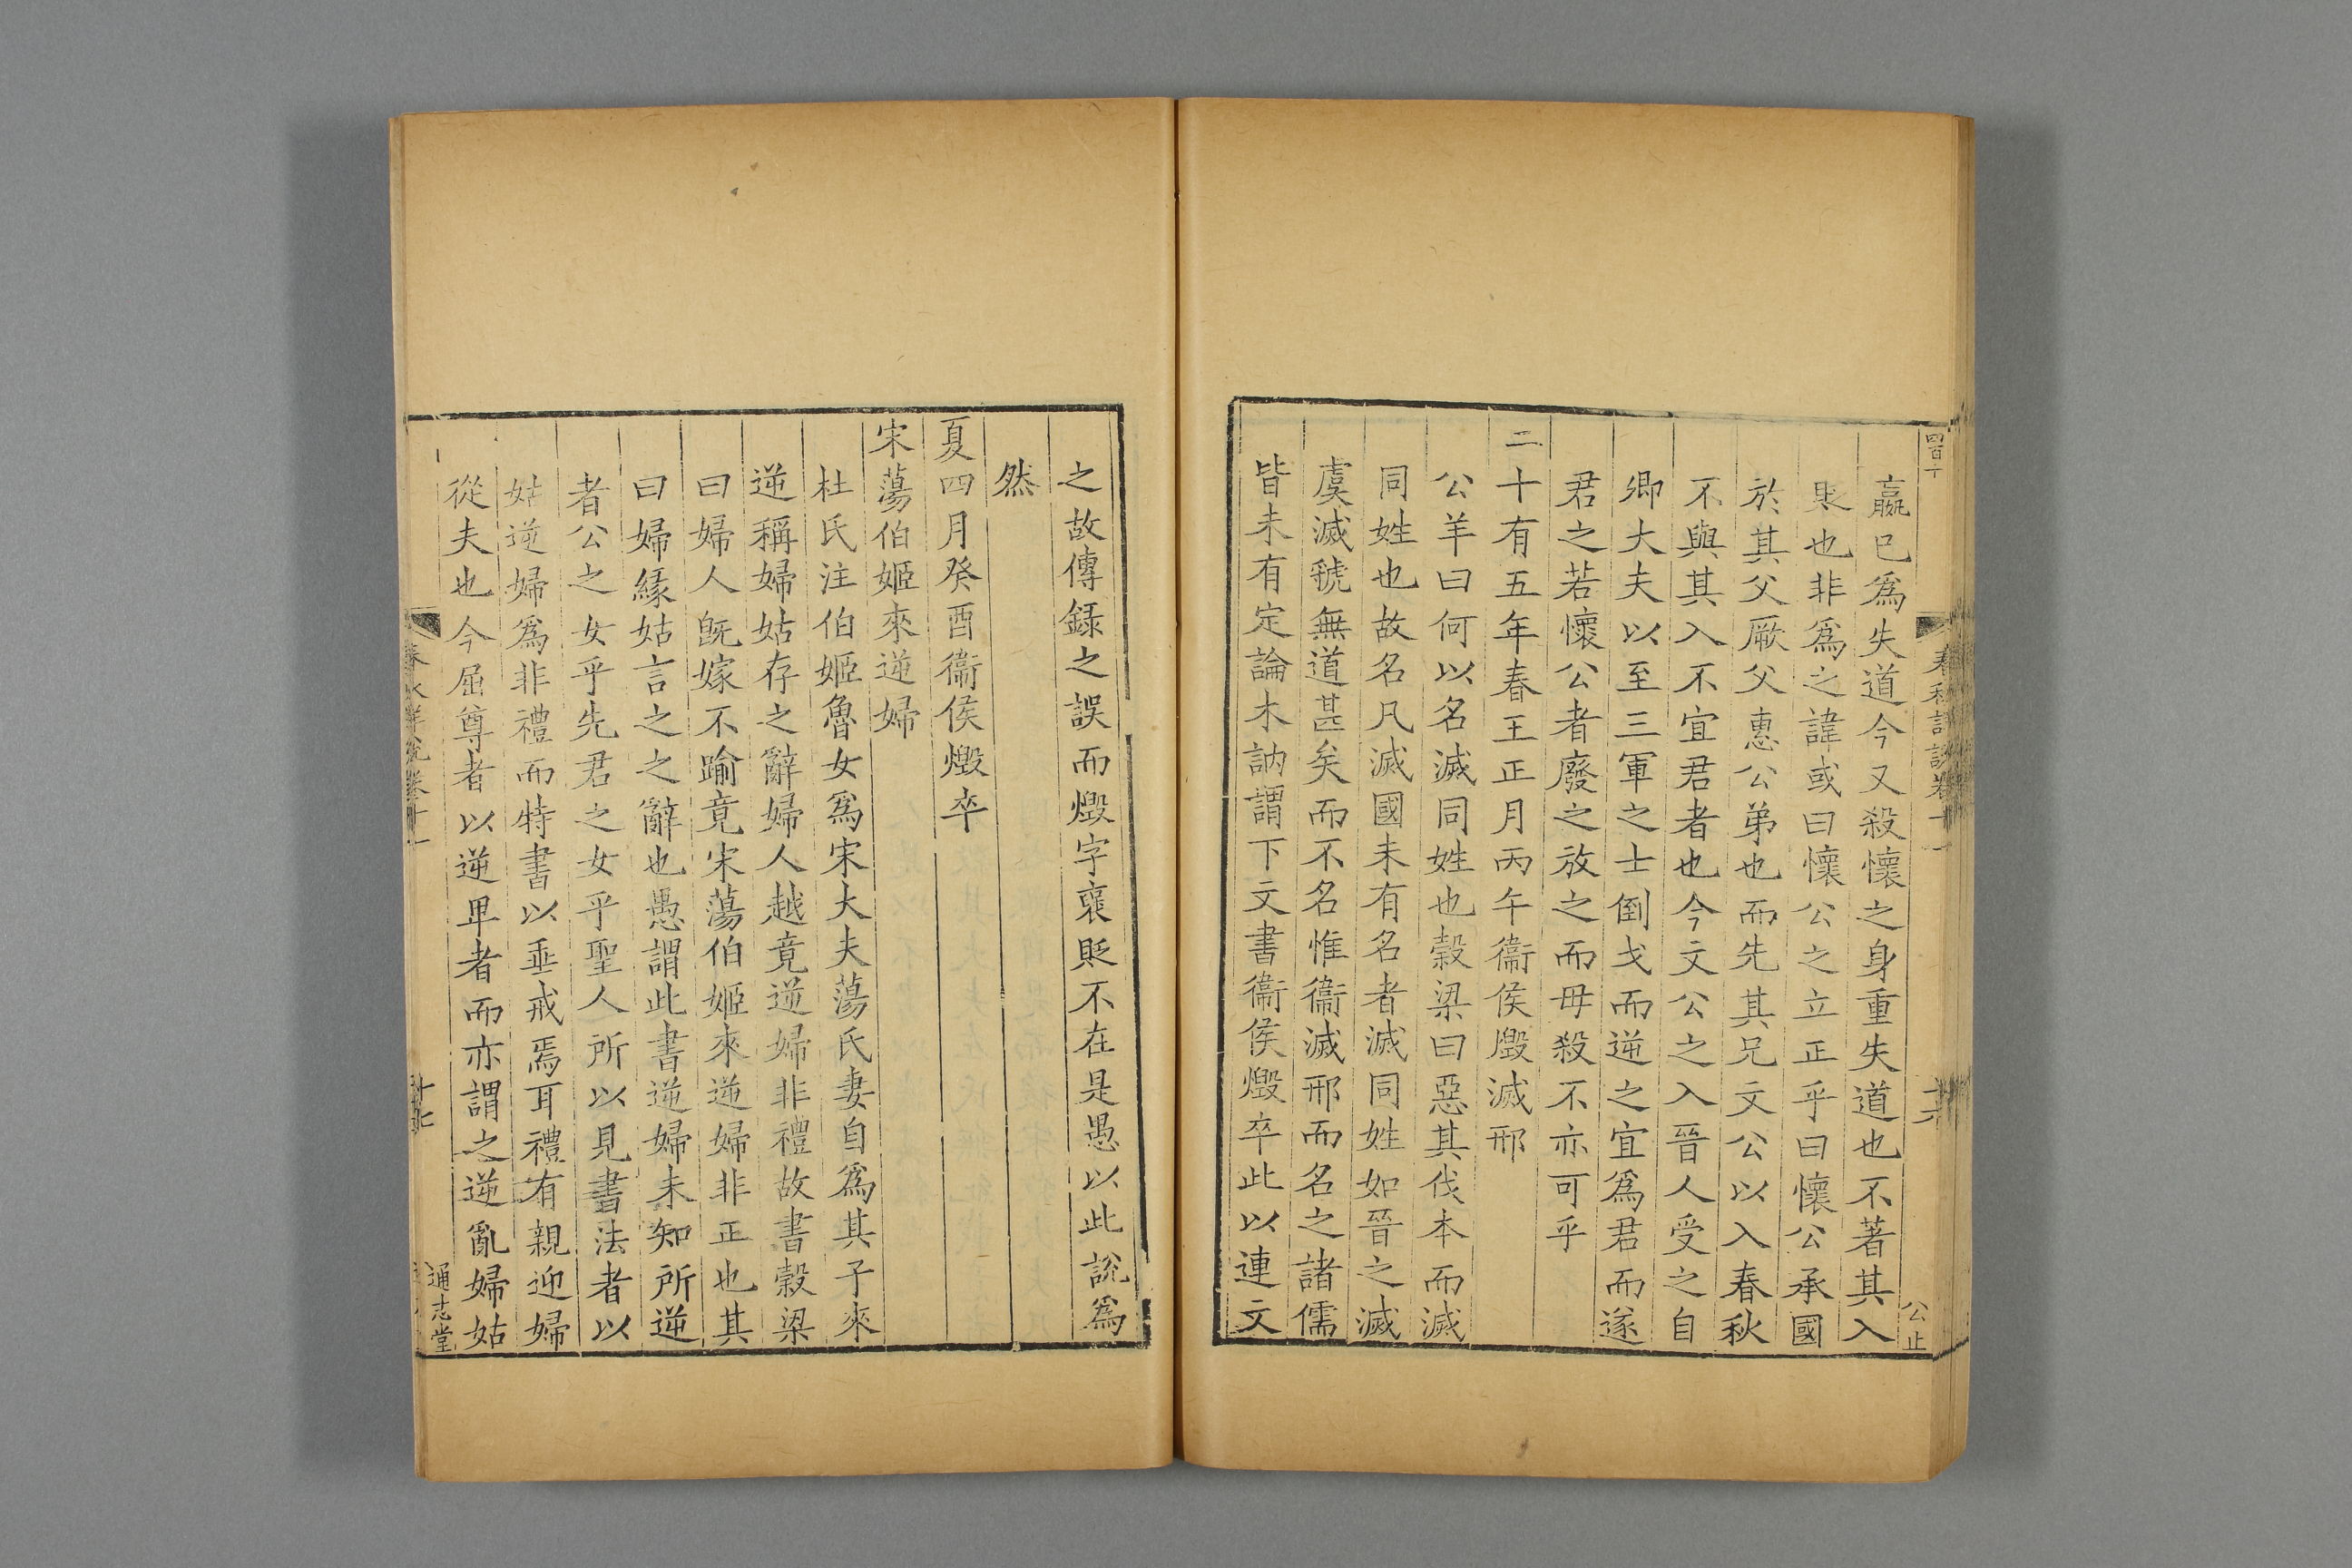 四百十
春秋詳說卷十一
十六
公止
嬴已爲失道今又殺懷之身重失道也不著其入
貶也非爲之諱或曰懷公之立正乎曰懷公承國
於其父厥父惠公弟也而先其兄文公以入春秋
不與其入不宜君者也今文公之入晉人受之自
卿大夫以至三軍之士倒戈而逆之宜爲君而遂
君之若懷公者廢之放之而毋殺不亦可乎
二十有五年春王正月丙午衞侯燬滅邢
公羊曰何以名滅同姓也穀梁曰惡其伐本而滅
同姓也故名凡滅國未有名者滅同姓如晉之滅
虞滅虢無道甚矣而不名惟衞滅邢而名之諸儒
皆未有定論木訥謂下文書衞侯燬卒此以連文
之故傳録之誤而燬字襃貶不在是愚以此說爲
然
夏四月癸酉衞侯燬卒
宋蕩伯姬來逆婦
杜氏注伯姬魯女爲宋大夫蕩氏妻自爲其子來
逆稱婦姑存之辭婦人越竟逆婦非禮故書穀梁
曰婦人旣嫁不踰竟宋蕩伯姬來逆婦非正也其
曰婦緣姑言之之辭也愚謂此書逆婦未知所逆
者公之女乎先君之女乎聖人所以見書法者以
姑逆婦爲非禮而特書以垂戒焉耳禮有親迎婦
從夫也今屈尊者以逆卑者而亦謂之逆亂婦姑
春秋詳說卷十一
十七
通志堂